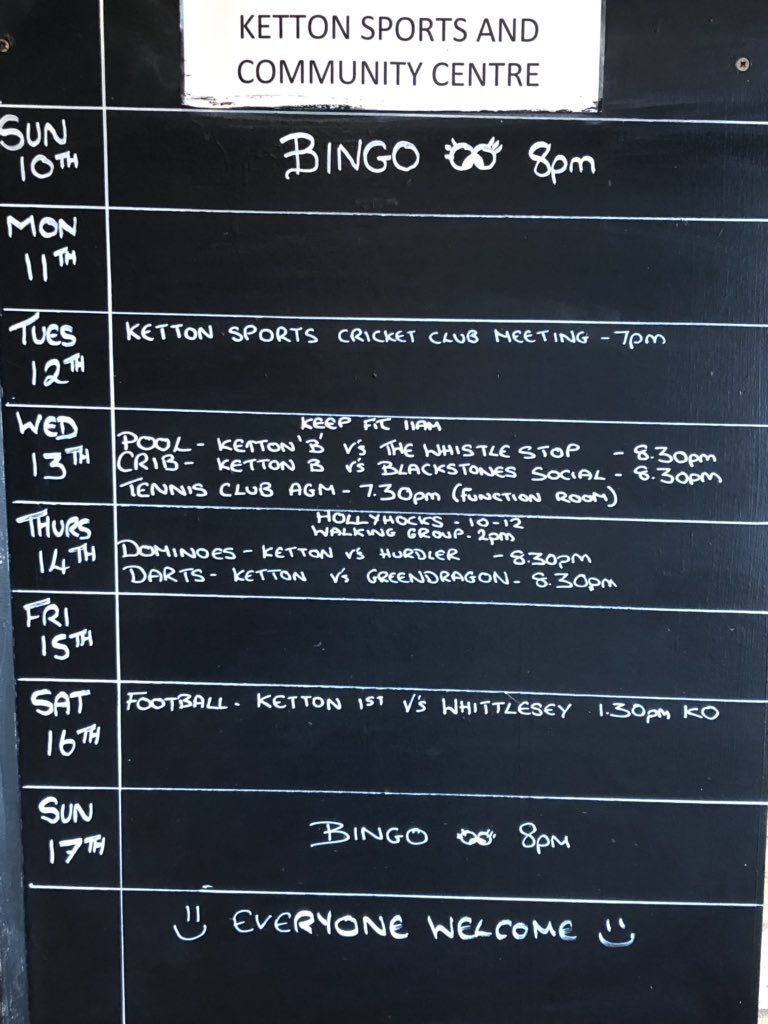 KETTON SPORTS AND
COMMUNITY CENTRE
SUN
10TH
BINGO 8pm
MON
11TH
TUES
12TH
KETTON SPORTS CRICKET CLUB MEETING - 7pm
WED
13TH
KEEP FIT 11AM
POOL - KETTON 'B' V's THE WHISTLE STOP - 8.30pm
CRIB - KETTON B V's BLACKSTONES SOCIAL - 8.30pm
TENNIS CLUB AGM - 7.30pm (FUNCTION ROOM)
THURS
14TH
HOLLYHOCKS - 10-12
WALKING GROUP - 2pm
DOMINOES - KETTON V's HURDLER - 8.30pm
DARTS - KETTON V's GREENDRAGON - 8.30pm
FRI
15TH
SAT
16TH
FOOTBALL - KETTON 1ST V's WHITTLESEY 1.30pm KO
SUN
17TH
BINGO 8PM
EVERYONE WELCOME